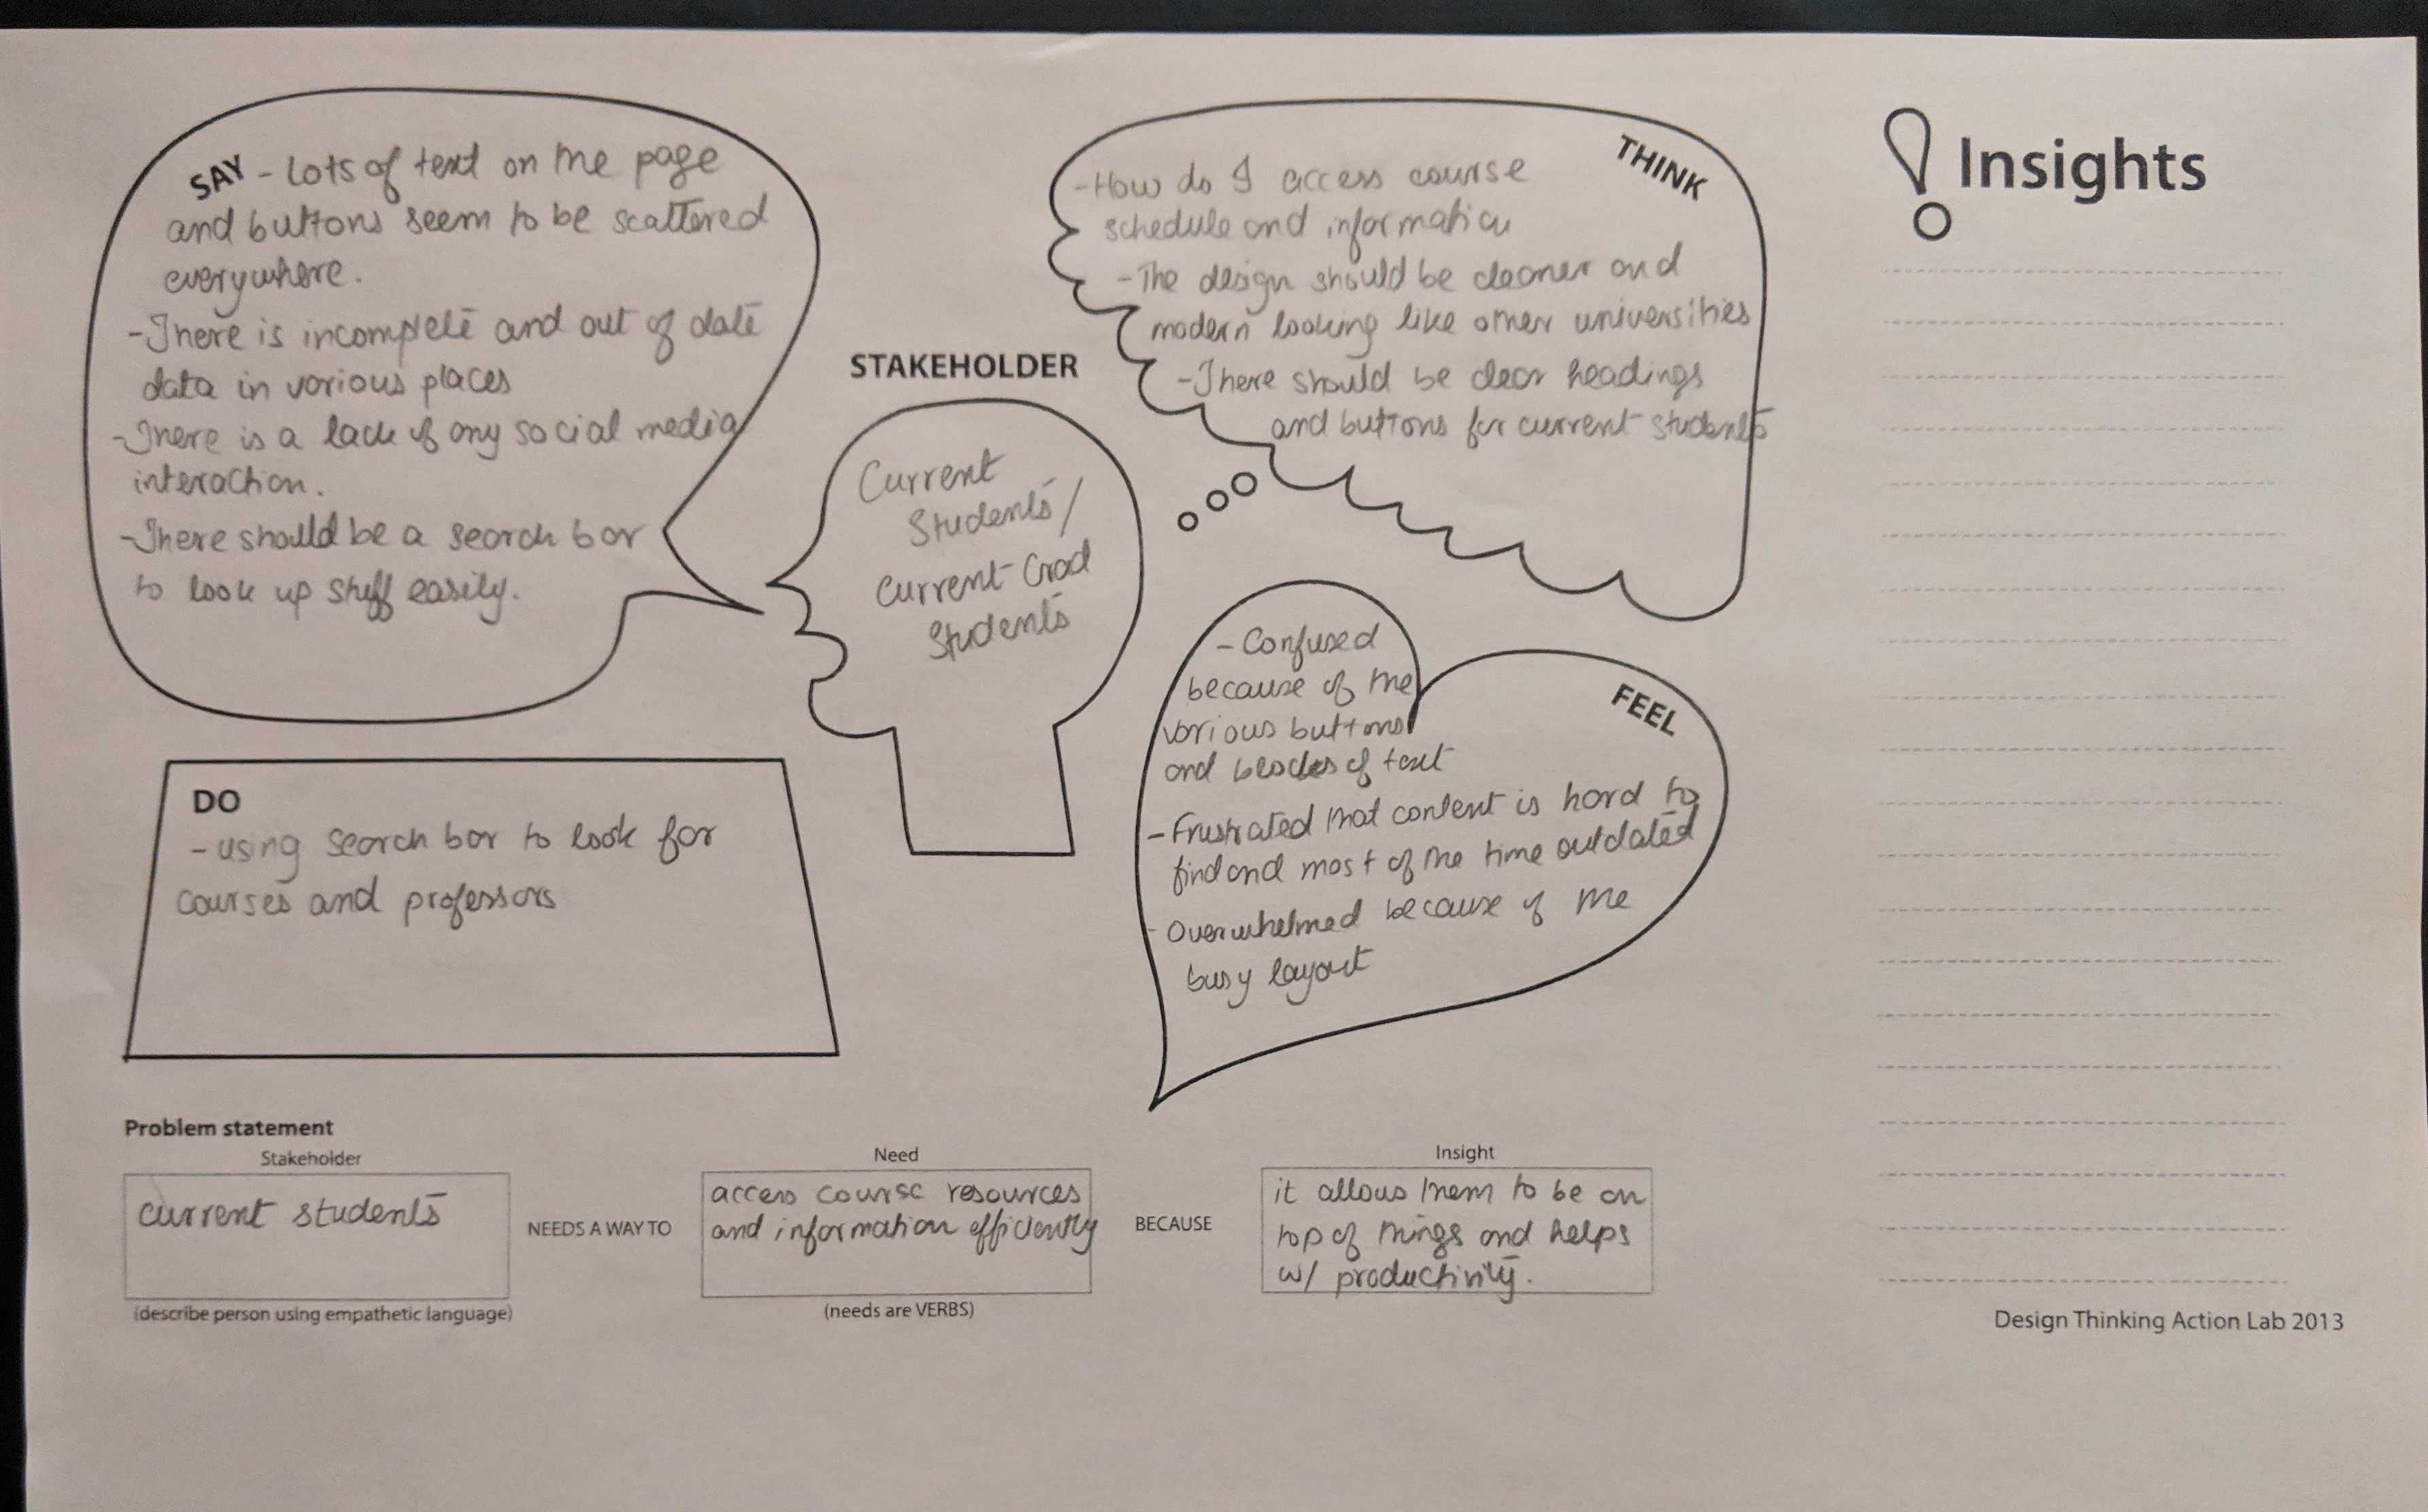 SAY - Lots of text on the page
and buttons seem to be scattered
everywhere.
- There is incomplete and out of date
data in various places
- There is a lack of any social media
interaction.
- There should be a search bar
to look up stuff easily.
THINK
- How do I access course
schedule and information
- The design should be cleaner and
modern looking like other universities
- There should be clear headings
and buttons for current students
STAKEHOLDER
Current
Students/
Current Grad
Students
FEEL
- Confused
because of the
various buttons
and blocks of text
- Frustrated that content is hard to
find and most of the time outdated
- Overwhelmed because of the
busy layout
DO
- using search bar to look for
courses and professors
Insights
Problem statement
Stakeholder
current students
(describe person using empathetic language)
NEEDS A WAY TO
Need
access course resources
and information efficiently
(needs are VERBS)
BECAUSE
Insight
it allows them to be on
top of things and helps
w/ productivity.
Design Thinking Action Lab 2013